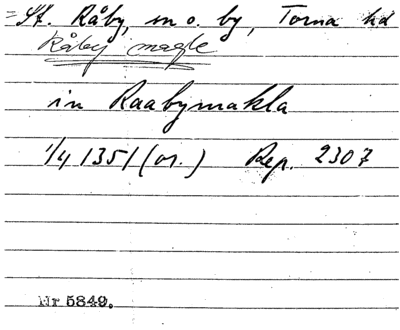 = St. Råby, sn o. by, Torna hd
Råby magle
in Raabymakla
1/4 1351 (or.) Rep. 2307
Nr 5849.